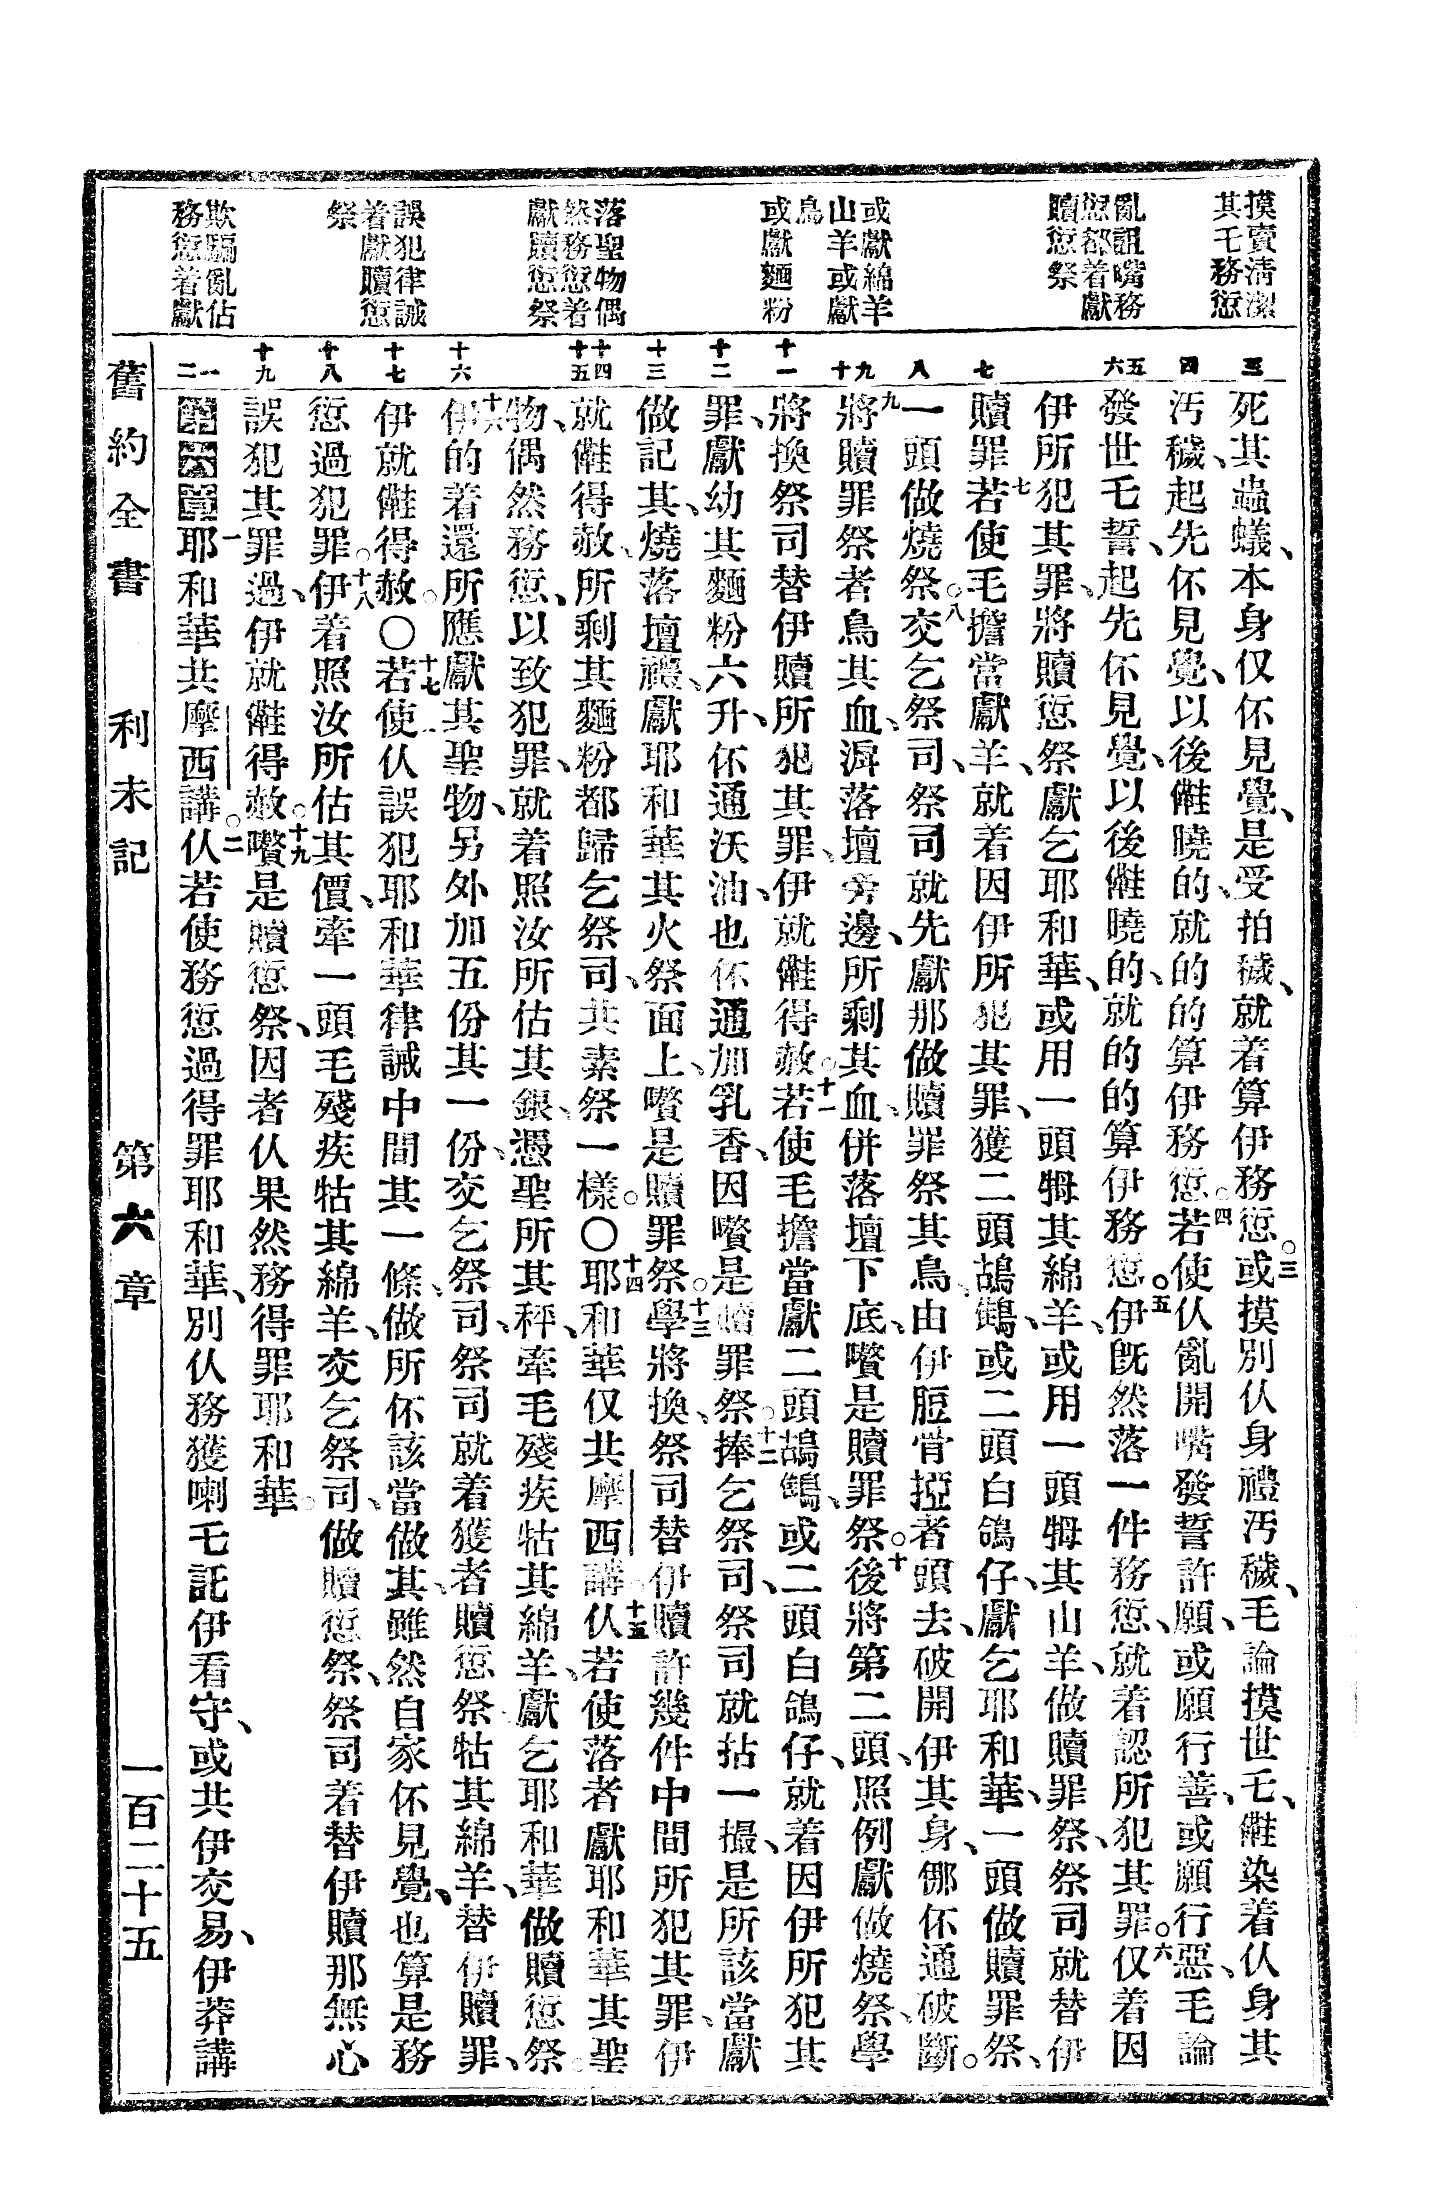 摸賣清潔
其乇務愆
亂詛嘴務
愆都着獻
贖愆祭
或獻綿羊
山羊或獻
鳥
或獻麵粉
落聖物偶
然務愆着
獻贖愆祭
誤犯律誡
着獻贖愆
祭
欺騙亂估
務愆着獻
三
四
五 六
七
八
九 十
十一
十二
十三
十四 十五
十六
十七
十八
十九
一 二
死其蟲蟻、本身仅伓見覺、是受拍穢、就着算伊務愆。三或摸別仈身禮汚穢、毛論摸世乇、㒰染着仈身其
汚穢、起先伓見覺、以後㒰曉的、就的的算伊務愆。四若使仈亂開嘴發誓許願、或願行善、或願行惡、毛論
發世乇誓、起先伓見覺、以後㒰曉的、就的的算伊務愆。五伊旣然落一件務愆、就着認所犯其罪。六仅着因
伊所犯其罪、將贖愆祭獻乞耶和華、或用一頭犡其綿羊、或用一頭犡其山羊、做贖罪祭、祭司就替伊
贖罪七若使毛擔當獻羊、就着因伊所犯其罪、獲二頭鴣鶵、或二頭白鴿仔、獻乞耶和華、一頭做贖罪祭、
一頭做燒祭。八交乞祭司、祭司就先獻那做贖罪祭其鳥、由伊脰骨掗者頭去、破開伊其身、㑚伓通破斷。
九將贖罪祭者鳥其血、漘落壇旁邊、所剩其血、併落壇下底、嚽是贖罪祭。十後將第二頭、照例獻做燒祭、學
將換祭司替伊贖所犯其罪、伊就㒰得赦。十一若使毛擔當獻二頭鴣鶵、或二頭白鴿仔、就着因伊所犯其
罪、獻幼其麵粉六升、伓通沃油、也伓通加乳香、因嚽是贖罪祭。十二捧乞祭司、祭司就拈一撮、是所該當獻
做記其、燒落壇禮、獻耶和華其火祭面上、嚽是贖罪祭。十三學將換、祭司替伊贖許幾件中間所犯其罪、伊
就㒰得赦、所剩其麵粉都歸乞祭司、共素祭一樣。〇十四耶和華仅共摩西講。十五仈若使落者獻耶和華其聖
物、偶然務愆、以致犯罪、就着照汝所估其銀、憑聖所其秤、牽毛殘疾牯其綿羊、獻乞耶和華做贖愆祭。
十六伊的着還所應獻其聖物、另外加五份其一份、交乞祭司、祭司就着獲者贖愆祭牯其綿羊、替伊贖罪、
伊就㒰得赦。〇十七若使仈誤犯耶和華律誡中間其一條、做所伓該當做其、雖然自家伓見覺、也算是務
愆過犯罪。十八伊着照汝所估其價、牽一頭毛殘疾牯其綿羊、交乞祭司、做贖愆祭、祭司着替伊贖那無心
誤犯其罪過、伊就㒰得赦。十九嚽是贖愆祭、因者仈果然務得罪耶和華。
第六章一耶和華共摩西講。二仈若使務愆過得罪耶和華、別仈務獲喇乇託伊看守、或共伊交易、伊莽講
舊約全書 利未記 第六章 一百二十五